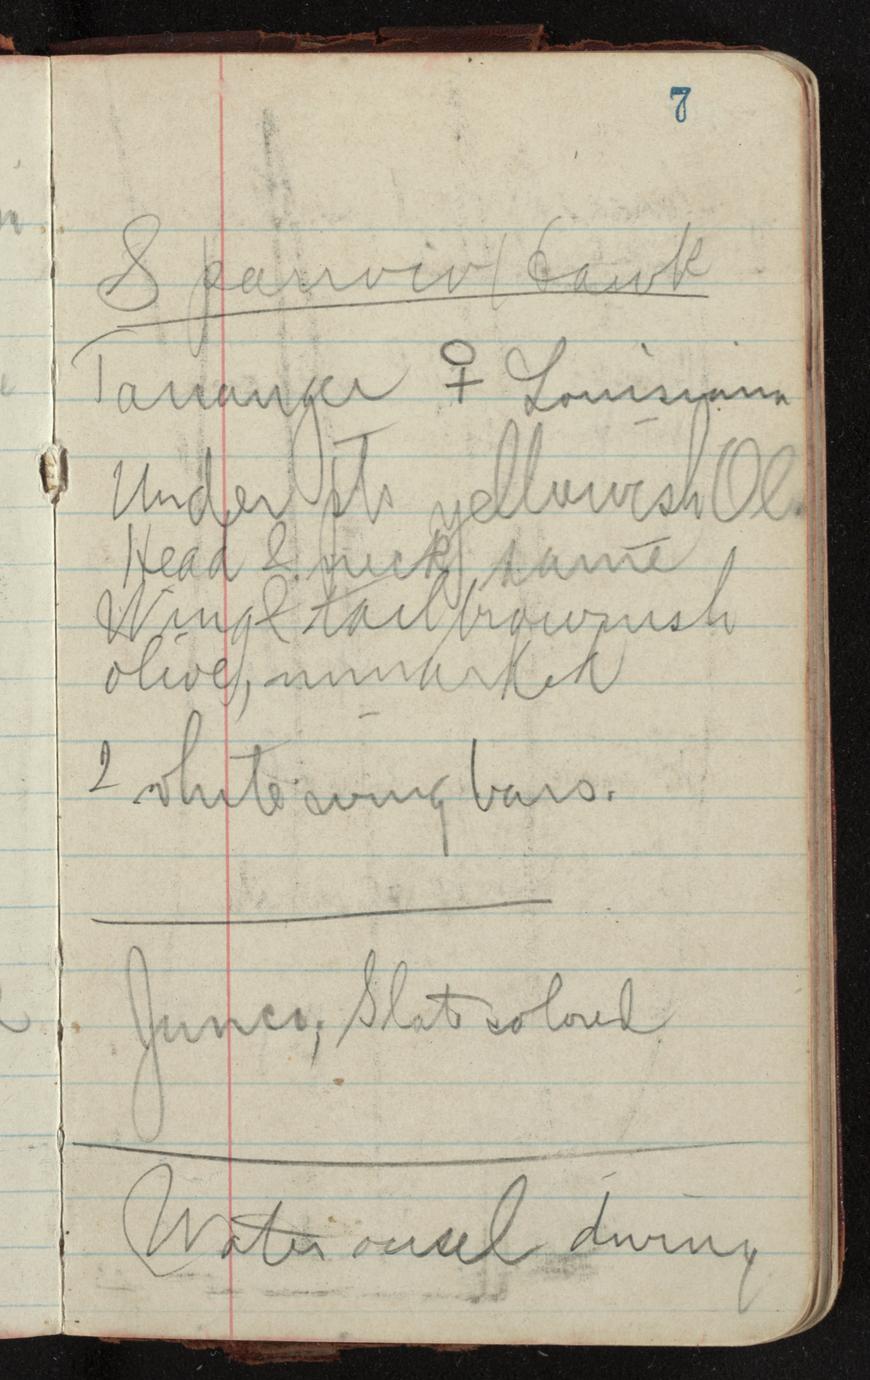 7
Sparrow Hawk
Tananger ♀ Louisiana
Under pts yellowish Ol.
Head & neck same
Wing & tail brownish
olive, unmarked
2 white wing bars.
Junco, Slate colored
Water ousel diving